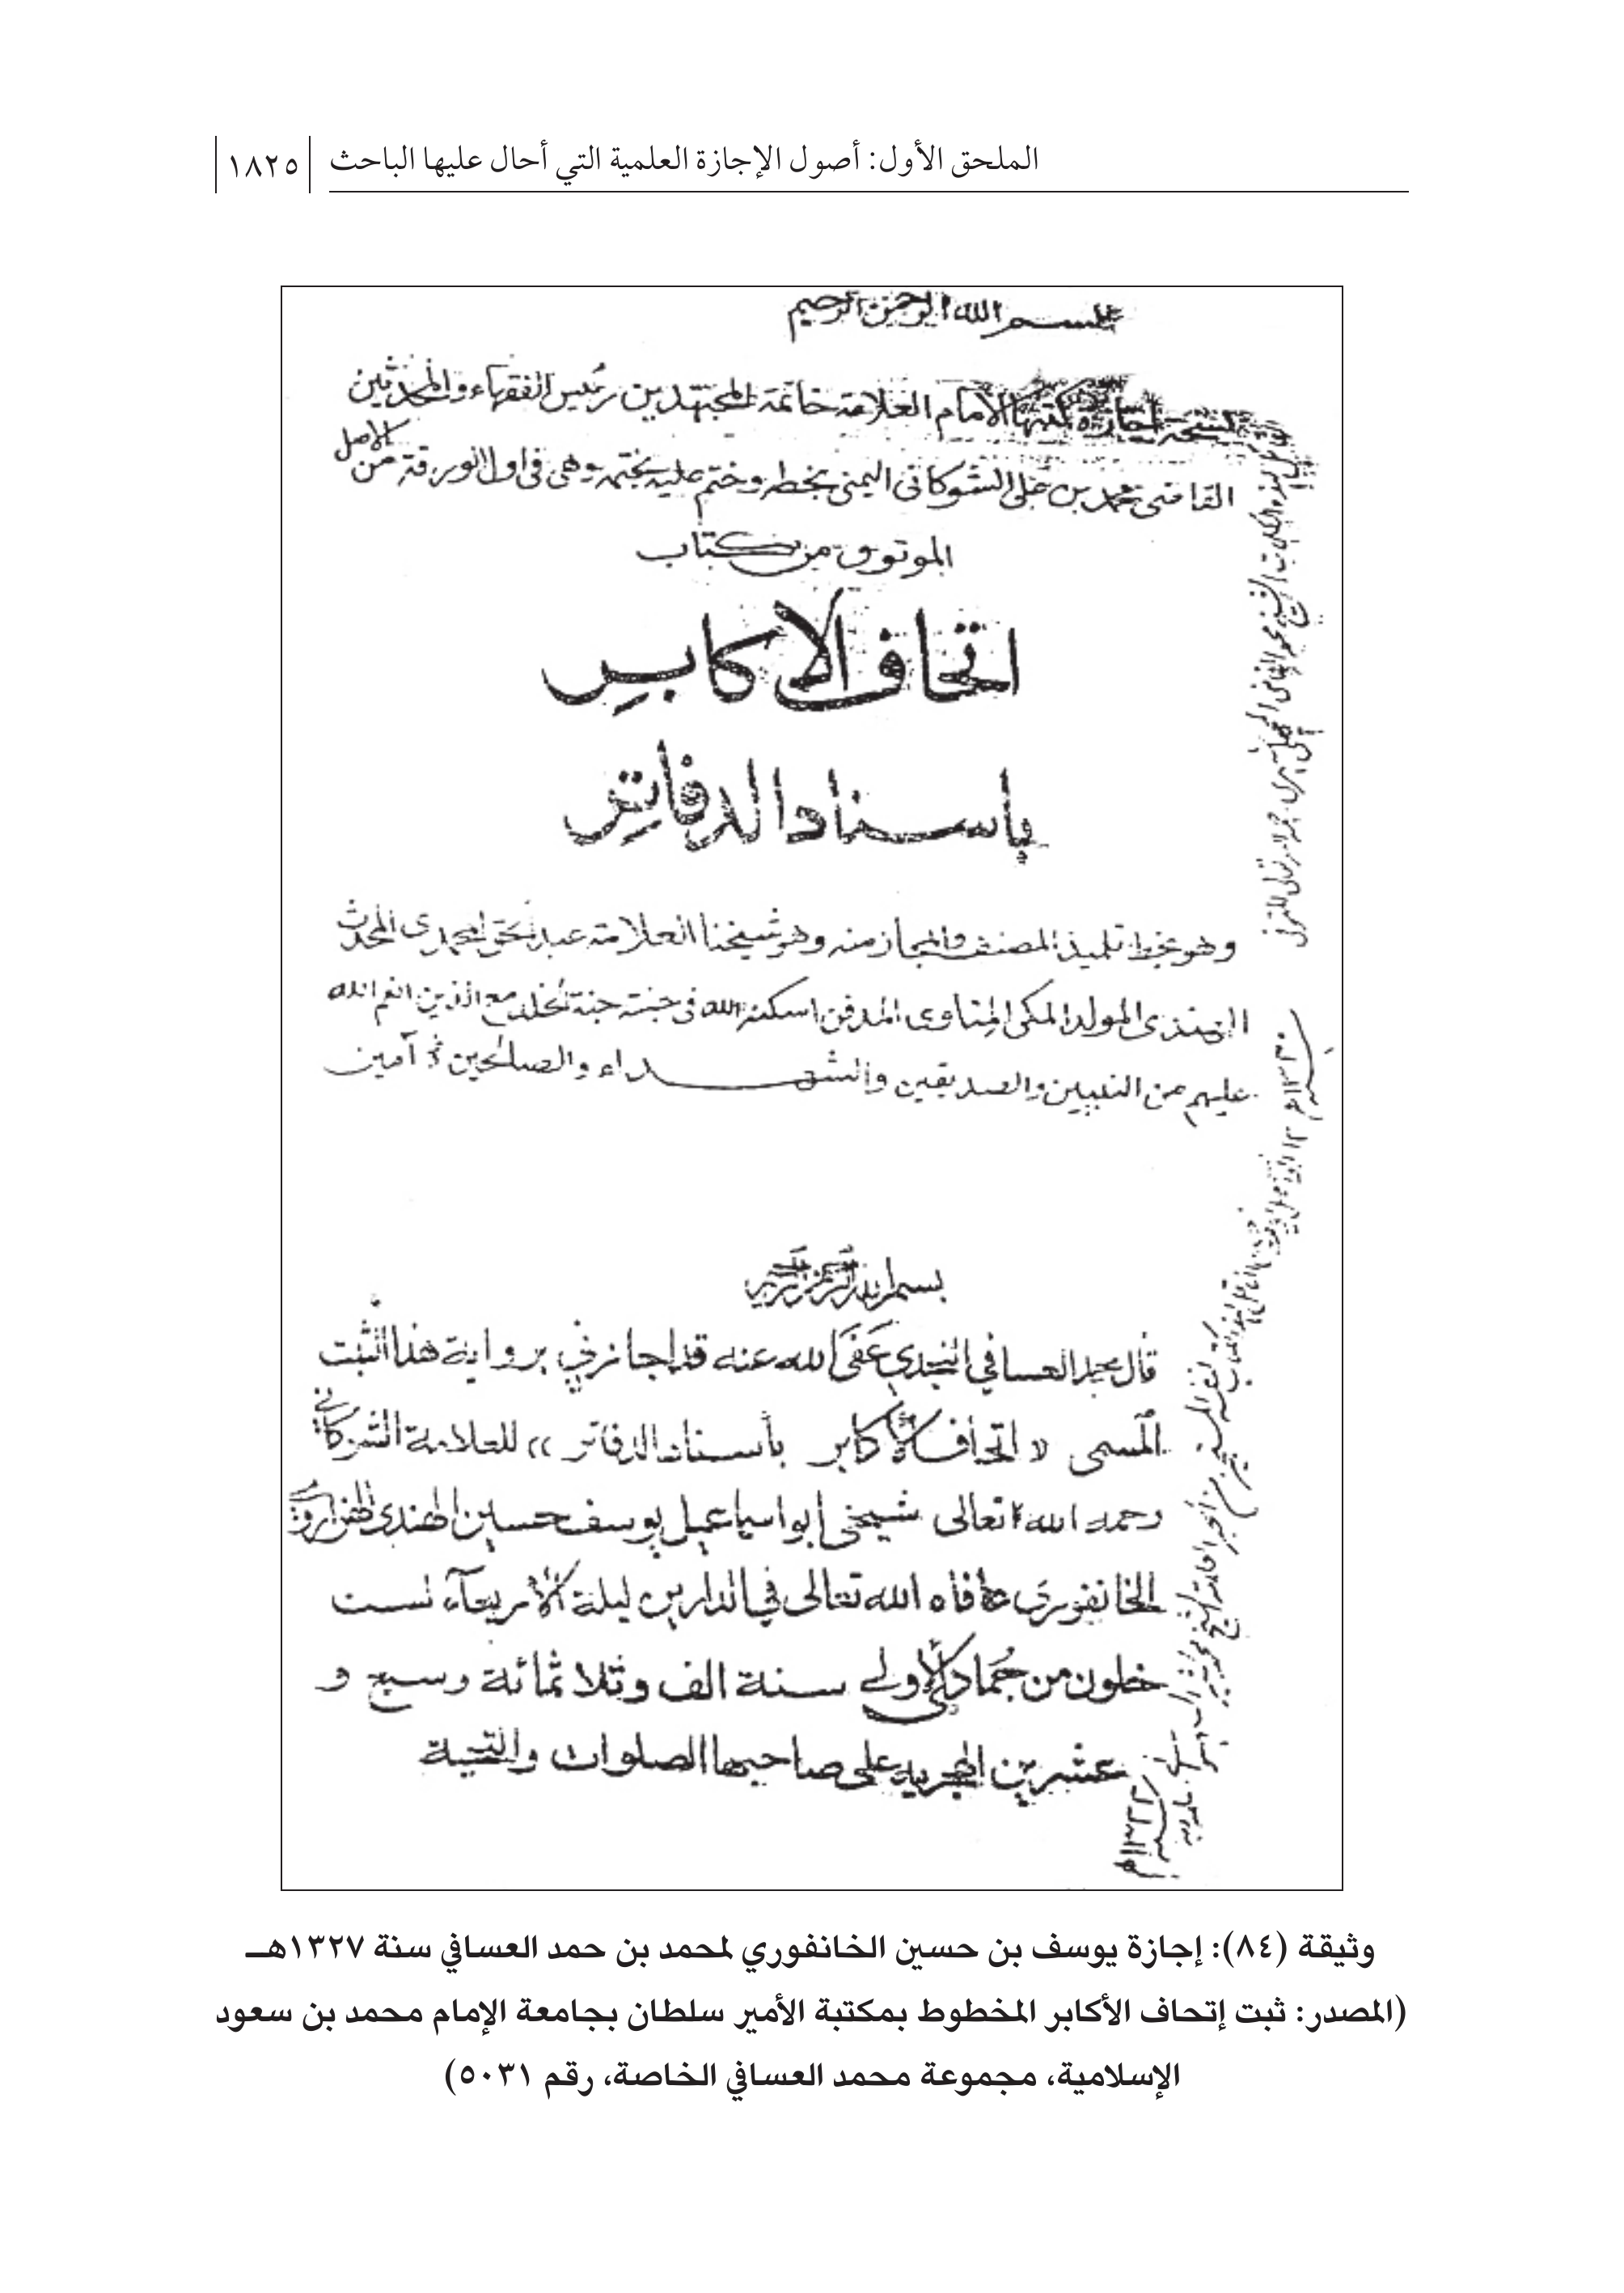 الملحق الأول: أصول الإجازة العلمية التي أحال عليها الباحث ١٨٢٥
بسم الله الرحمن الرحيم
نسخة إجازة كتبها الامام العلامة خاتمة المجتهدين رئيس الفقهاء والمحدثين
القاضى محمد بن على الشوكانى اليمنى بخطه وختم عليه بختمه وهى فى اول الورقة من الاصل
الموثوق من كتاب
اتحاف الاكابر
باسناد الدفاتر
وهو بخط تلميذ المصنف والمجاز منه وهو شيخنا العلامة عبد الحق المحمدى المحدث
الهندى المولد المكى المناوى المدفن اسكنه الله فى جنته جنة الخلد مع الذين انعم الله
عليهم من النبيين والصديقين والشهداء والصالحين آمين
بسم الله الرحمن الرحيم
قال محمد العسافي النجدي عَفَى الله عنه قد اجازني برواية هذا الثبت
المسمى « اتحاف الأكابر بأسناد الدفاتر » للعلامة الشوكاني
رحمه الله تعالى شيخي أبو اسماعيل يوسف حسين الهندي الهزاروي
الخانفوري عافاه الله تعالى في الدارين ليلة الأربعآء لست
خلون من جُمادى الأولى سنة الف وثلاثمائة وسبع و
عشرين الهجرية على صاحبها الصلوات والتحية
وثيقة (٨٤): إجازة يوسف بن حسين الخانفوري لمحمد بن حمد العسافي سنة ١٣٢٧هـ
(المصدر: ثبت إتحاف الأكابر المخطوط بمكتبة الأمير سلطان بجامعة الإمام محمد بن سعود
الإسلامية، مجموعة محمد العسافي الخاصة، رقم ٥٠٣١)